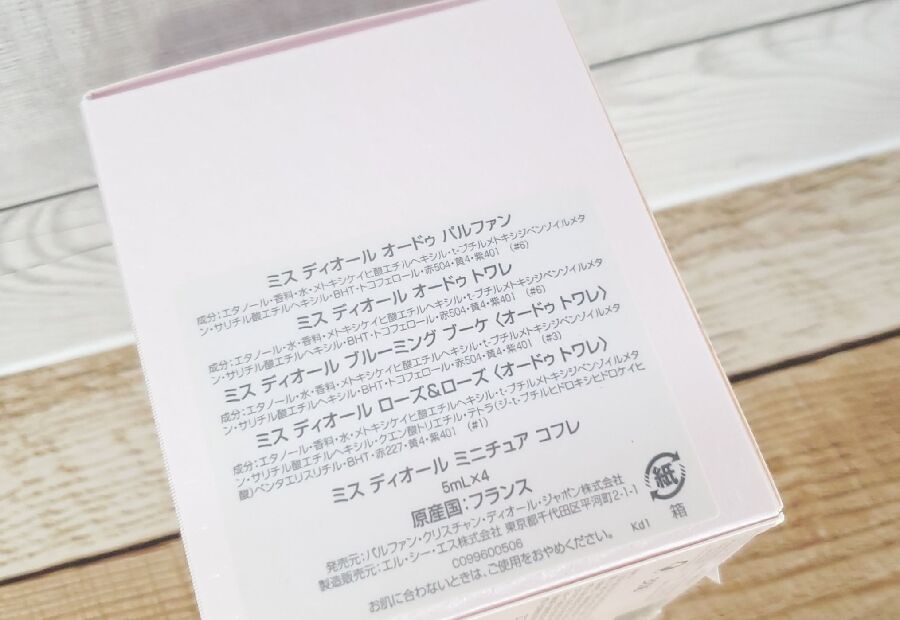 ミス ディオール オードゥ パルファン
成分：エタノール・香料・水・メトキシケイヒ酸エチルヘキシル・t-ブチルメトキシジベンゾイルメタ
ン・サリチル酸エチルヘキシル・BHT・トコフェロール・赤504・黄4・紫401 （#6）
ミス ディオール オードゥ トワレ
成分：エタノール・水・香料・メトキシケイヒ酸エチルヘキシル・t-ブチルメトキシジベンゾイルメタ
ン・サリチル酸エチルヘキシル・BHT・トコフェロール・赤504・黄4・紫401 （#6）
ミス ディオール ブルーミング ブーケ〈オードゥ トワレ〉
成分：エタノール・水・香料・メトキシケイヒ酸エチルヘキシル・t-ブチルメトキシジベンゾイルメタ
ン・サリチル酸エチルヘキシル・BHT・トコフェロール・赤504・黄4・紫401 （#3）
ミス ディオール ローズ&ローズ〈オードゥ トワレ〉
成分：エタノール・香料・水・メトキシケイヒ酸エチルヘキシル・t-ブチルメトキシジベンゾイルメタ
ン・サリチル酸エチルヘキシル・クエン酸トリエチル・テトラ(ジ-t-ブチルヒドロキシヒドロケイヒ
酸)ペンタエリスリチル・BHT・赤227・黄4・紫401 （#1）
ミス ディオール ミニチュア コフレ
5mL×4
原産国：フランス
発売元：パルファン・クリスチャン・ディオール・ジャポン株式会社
製造販売元：エル・シー・エス株式会社 東京都千代田区平河町2-1-1
C099600506
Kd1
お肌に合わないときは、ご使用をおやめください。
紙
箱